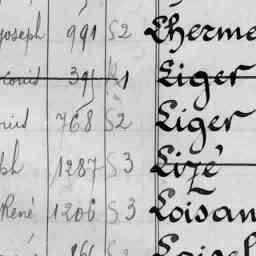 Joseph 991 S2 Lherme
Louis 391 1 Liger
768 S2 Liger
ph 1287 S3 Lizé
René 1206 S3 Loisan